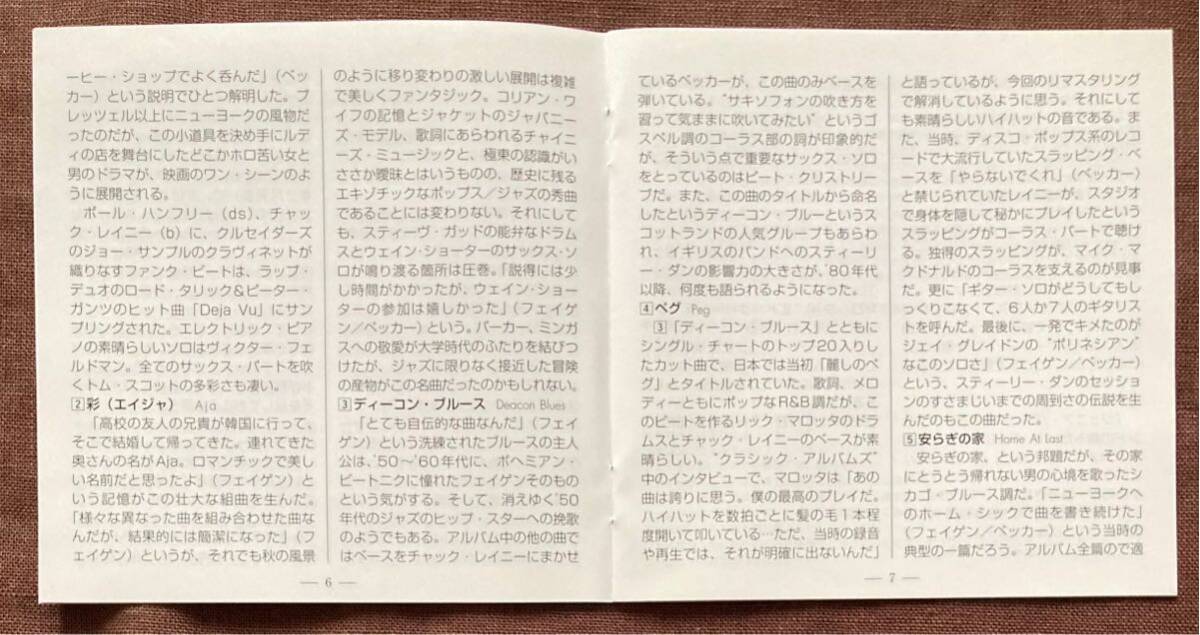 ーヒー・ショップでよく呑んだ」（ベッ
カー）という説明でひとつ解明した。プ
レッツェル以上にニューヨークの風物だ
ったのだが、この小道具を決め手にルデ
ィの店を舞台にしたどこかホロ苦い女と
男のドラマが、映画のワン・シーンのよう
に展開される。
　ポール・ハンフリー（ds）、チャッ
ク・レイニー（b）に、クルセイダーズ
のジョー・サンプルのクラヴィネットが
織りなすファンク・ビートは、ラップ・
デュオのロード・タリック＆ピーター・
ガンツのヒット曲「Deja Vu」にサン
プリングされた。エレクトリック・ピア
ノの素晴らしいソロはヴィクター・フェ
ルドマン。全てのサックス・パートを吹
くトム・スコットの多彩さも凄い。
2 彩（エイジャ） Aja
　「高校の友人の兄貴が韓国に行って、
そこで結婚して帰ってきた。連れてきた
奥さんの名がAja。ロマンチックで美し
い名前だと思ったよ」（フェイゲン）と
いう記憶がこの壮大な組曲を生んだ。
「様々な異なった曲を組み合わせた曲な
んだが、結果的には簡潔になった」（フ
ェイゲン）というが、それでも秋の風景
のように移り変わりの激しい展開は複雑
で美しくファンタジック。コリアン・ワ
イフの記憶とジャケットのジャパニー
ズ・モデル、歌詞にあらわれるチャイニ
ーズ・ミュージックと、極東の認識がい
ささか曖昧とはいうものの、歴史に残る
エキゾチックなポップス／ジャズの秀曲
であることには変わりない。それにして
も、スティーヴ・ガッドの能弁なドラム
スとウェイン・ショーターのサックス・ソ
ロが鳴り渡る箇所は圧巻。「説得には少
し時間がかかったが、ウェイン・ショー
ターの参加は嬉しかった」（フェイゲ
ン／ベッカー）という。パーカー、ミンガ
スへの敬愛が大学時代のふたりを結びつ
けたが、ジャズに限りなく接近した冒険
の産物がこの名曲だったのかもしれない。
3 ディーコン・ブルース Deacon Blues
　「とても自伝的な曲なんだ」（フェイ
ゲン）という洗練されたブルースの主人
公は、'50〜'60年代に、ボヘミアン・
ビートニクに憧れたフェイゲンそのもの
という気がする。そして、消えゆく'50
年代のジャズのヒップ・スターへの挽歌
のようでもある。アルバム中の他の曲で
はベースをチャック・レイニーにまかせ
— 6 —
ているベッカーが、この曲のみベースを
弾いている。"サキソフォンの吹き方を
習って気ままに吹いてみたい" というゴ
スペル調のコーラス部の詞が印象的だ
が、そういう点で重要なサックス・ソロ
をとっているのはピート・クリストリー
ブだ。また、この曲のタイトルから命名
したというディーコン・ブルーというス
コットランドの人気グループもあらわ
れ、イギリスのバンドへのスティーリ
ー・ダンの影響力の大きさが、'80年代
以降、何度も語られるようになった。
4 ペグ Peg
　3「ディーコン・ブルース」とともに
シングル・チャートのトップ20入りし
たカット曲で、日本では当初「麗しのペ
グ」とタイトルされていた。歌詞、メロ
ディーともにポップなR&B調だが、こ
のビートを作るリック・マロッタのドラ
ムスとチャック・レイニーのベースが素
晴らしい。"クラシック・アルバムズ"
中のインタビューで、マロッタは「あの
曲は誇りに思う。僕の最高のプレイだ。
ハイハットを数拍ごとに髪の毛1本程
度開いて叩いている…ただ、当時の録音
や再生では、それが明確に出ないんだ」
と語っているが、今回のリマスタリング
で解消しているように思う。それにして
も素晴らしいハイハットの音である。ま
た、当時、ディスコ・ポップス系のレコ
ードで大流行していたスラッピング・ベ
ースを「やらないでくれ」（ベッカー）
と禁じられていたレイニーが、スタジオ
で身体を隠して秘かにプレイしたという
スラッピングがコーラス・パートで聴け
る。独得のスラッピングが、マイク・マ
クドナルドのコーラスを支えるのが見事
だ。更に「ギター・ソロがどうしてもし
っくりこなくて、6人か7人のギタリス
トを呼んだ。最後に、一発でキメたのが
ジェイ・グレイドンの "ポリネシアン"
なこのソロさ」（フェイゲン／ベッカー）
という、スティーリー・ダンのセッショ
ンのすさまじいまでの周到さの伝説を生
んだのもこの曲だった。
5 安らぎの家 Home At Last
　安らぎの家、という邦題だが、その家
にとうとう帰れない男の心境を歌ったシ
カゴ・ブルース調だ。「ニューヨークへ
のホーム・シックで曲を書き続けた」
（フェイゲン／ベッカー）という当時の
典型の一篇だろう。アルバム全篇ので適
— 7 —